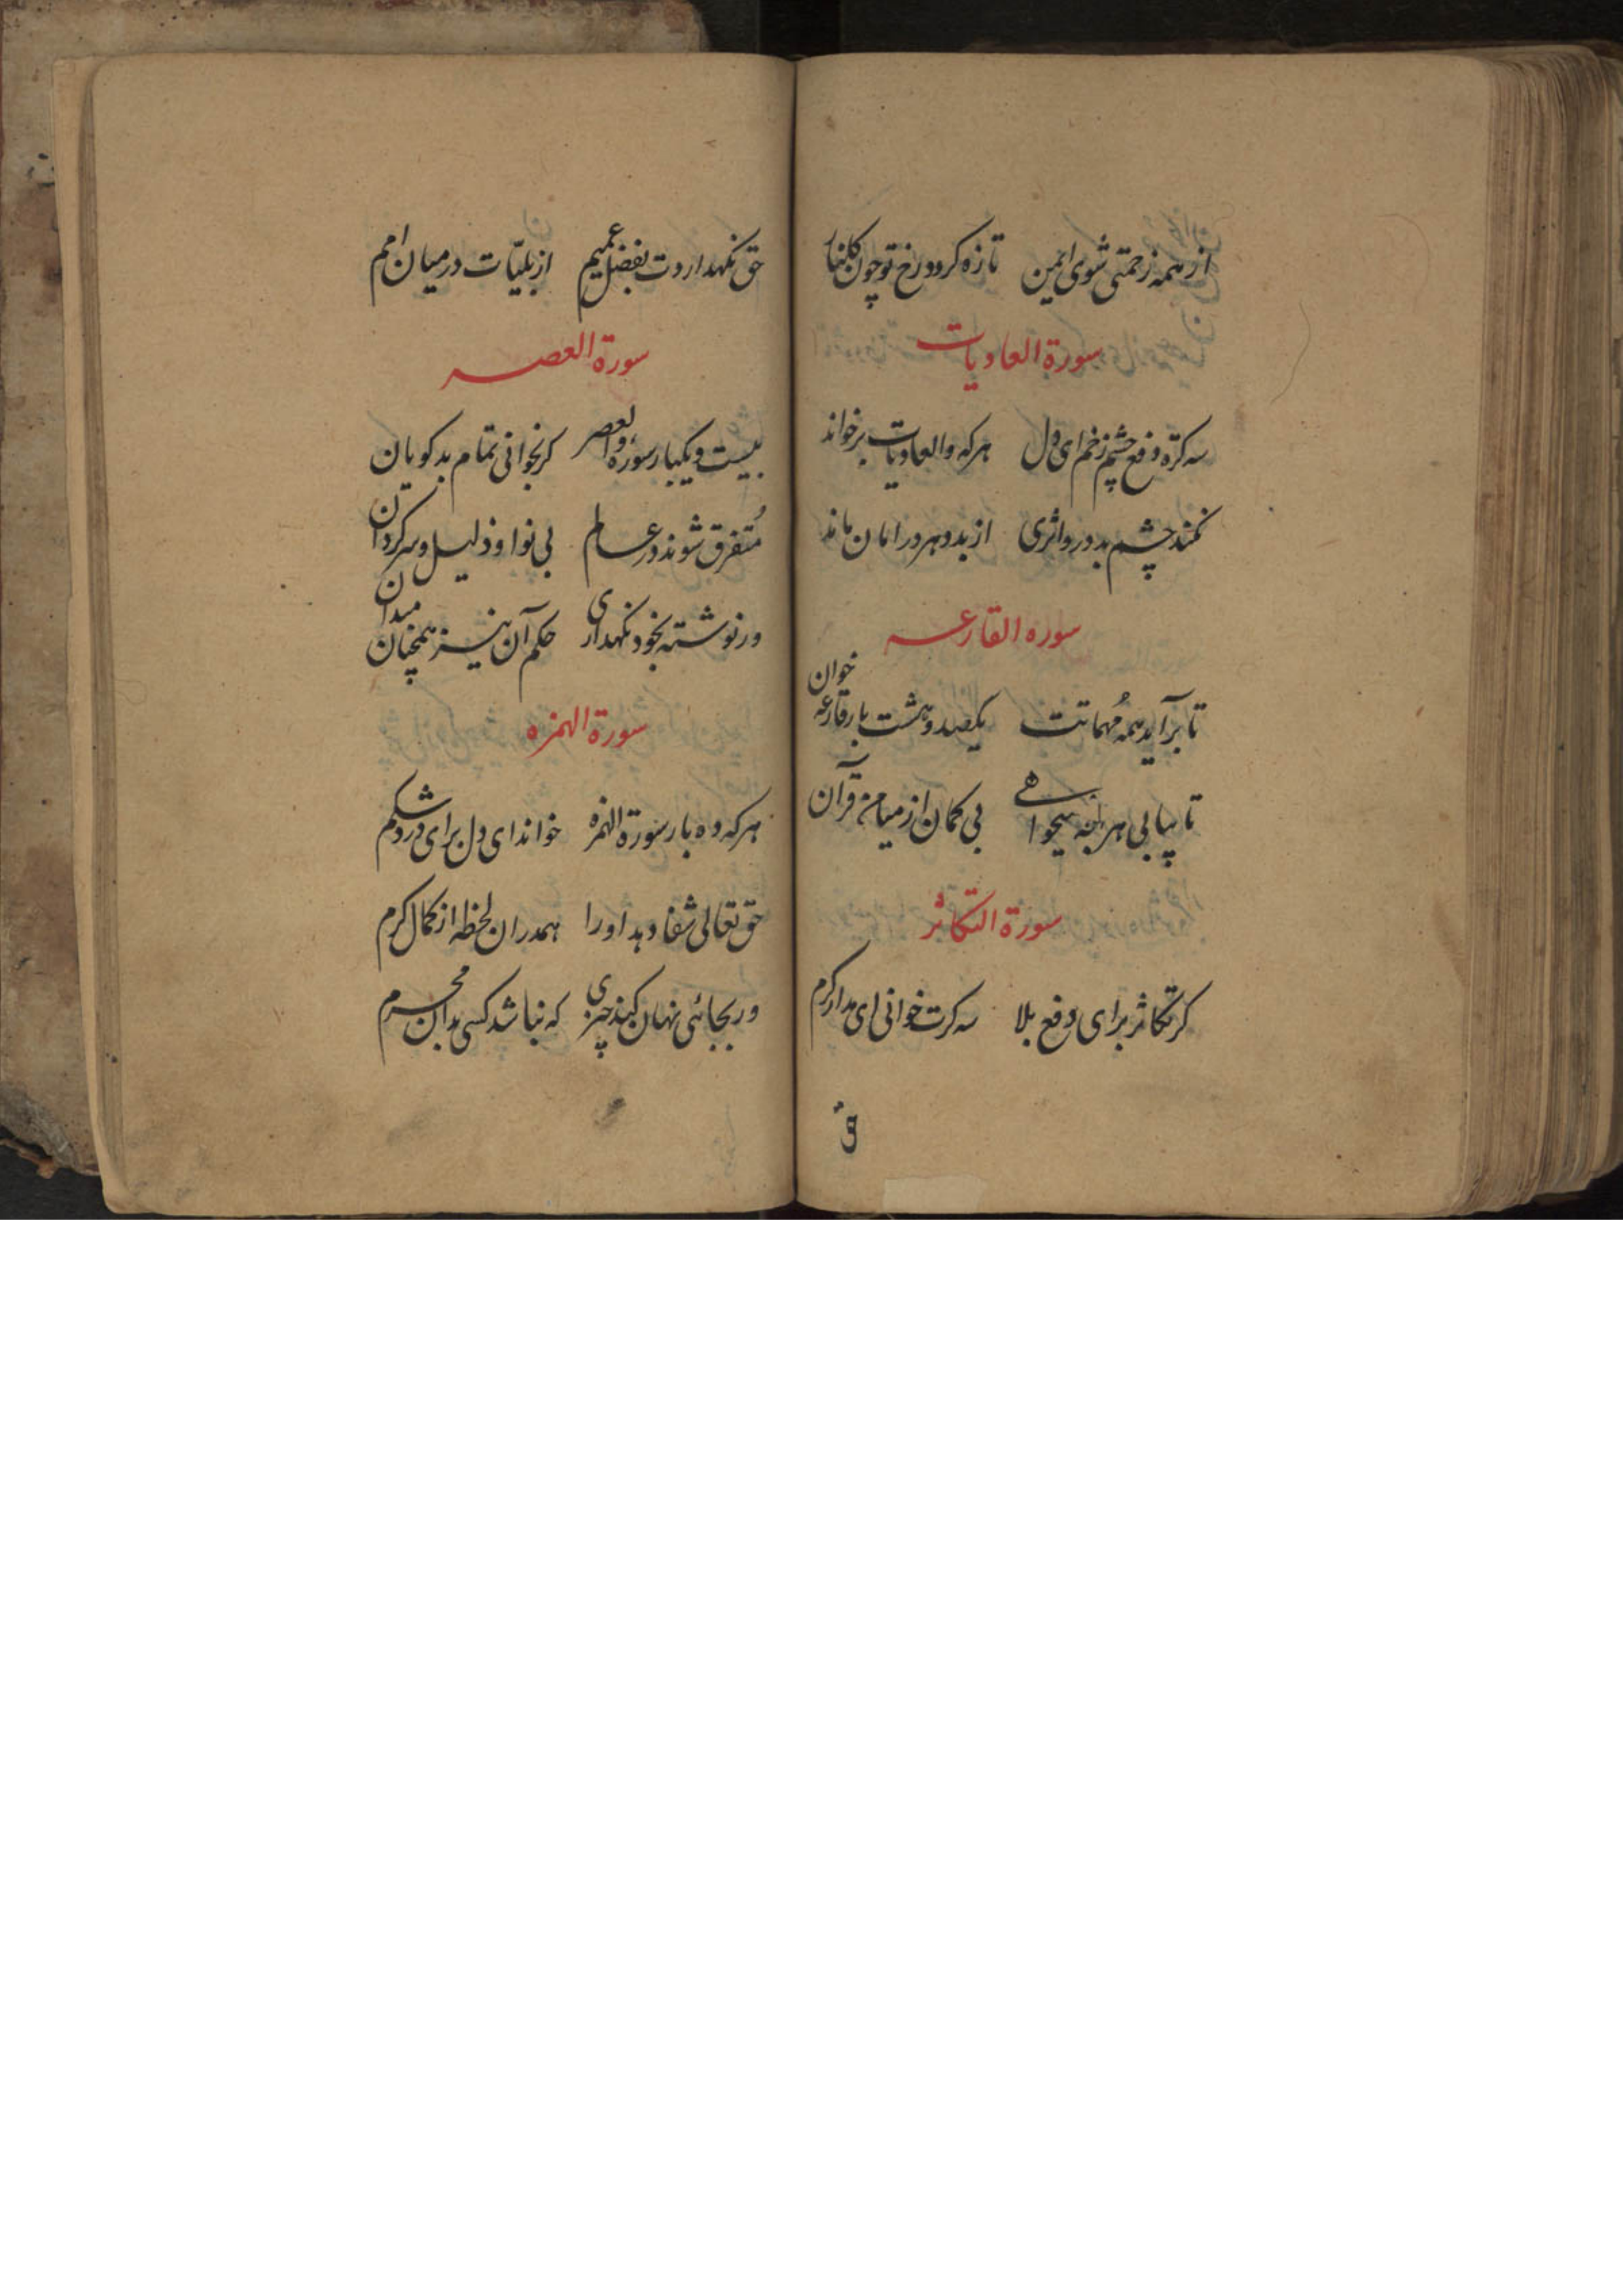 از همه زحمتی شوی ایمن تازه کردد رخ تو چون کلنار
سورة العادیات
سه کرة دفع چشم زخم ای دل هرکه والعادیات برخواند
نکند چشم بد درو اثری از بد دهر در امان ماند
سوره القارعه
تا برآید همه مُهماتت یکصد و هشت بار قارعه خوان
تا بیابی هر آنچه میخواهی بی کمان از میامن قرآن
سورة التکاثر
کر تکاثر برای دفع بلا سه کرت خوانی ای مدار کرم
حق
حق نکهداردت بفضل عمیم از بلیّات در میان امم
سورة العصر
بیست و یکبار سورۀ والعصر کر بخوانی تمام بدکویان
مُتفرق شوند در عالم بی نوا و ذلیل و سرکردان
ور نوشته بخود نکهداری حکم آن نیز همچنان میدان
سورة الهمزه
هرکه ده بار سورة الهمزه خواند ای دل برای درد شکم
حق تعالی شفا دهد او را همدران لحظه از کمال کرم
ور بجائی نهان کند چیزی که نباشد کسی بدان محرم